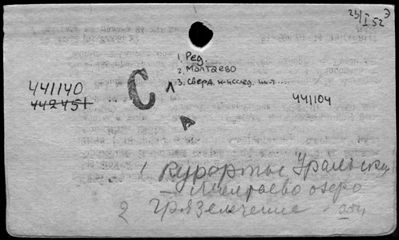 24/I 52 Э
1. Ред.
2. Молтаево
3. Сверд. н-исслед. ин-т ...
441140
442451
С
441104
А
1 Курорты Уральск
– Молтаево озеро
2 Грязелечение –